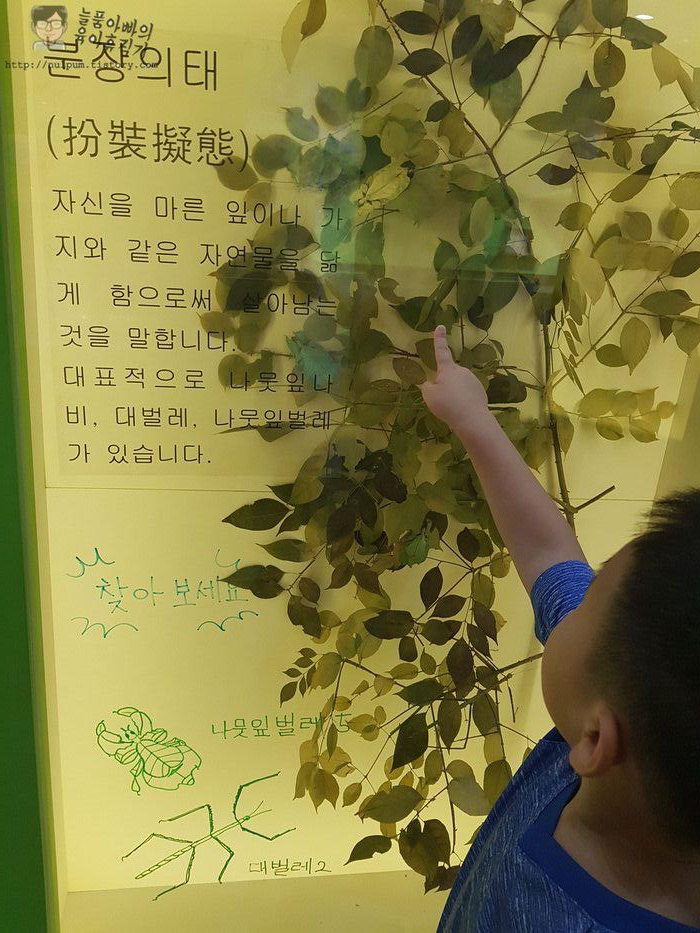 늘품아빠의
육아휴직기
http://nulpum.tistory.com
분장의태
(扮裝擬態)
자신을 마른 잎이나 가
지와 같은 자연물을 닮
게 함으로써 살아남는
것을 말합니다.
대표적으로 나뭇잎나
비, 대벌레, 나뭇잎벌레
가 있습니다.
찾아보세요
나뭇잎벌레 5
대벌레2